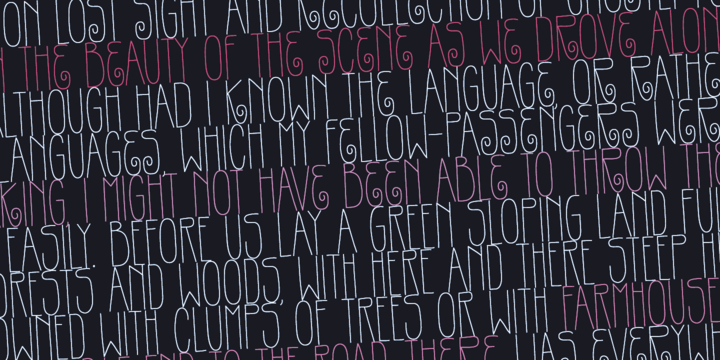 ON LOST SIGHT AND RECOLLECTION OF GHOSTLY
THE BEAUTY OF THE SCENE AS WE DROVE ALON
LTHOUGH HAD I KNOWN THE LANGUAGE, OR RATHE
ANGUAGES, WHICH MY FELLOW-PASSENGERS WER
KING, I MIGHT NOT HAVE BEEN ABLE TO THROW THE
EASILY. BEFORE US LAY A GREEN SLOPING LAND FU
ORESTS AND WOODS, WITH HERE AND THERE STEEP H
OWNED WITH CLUMPS OF TREES OR WITH FARMHOUSE
END TO THE ROAD. THERE WAS EVERYW